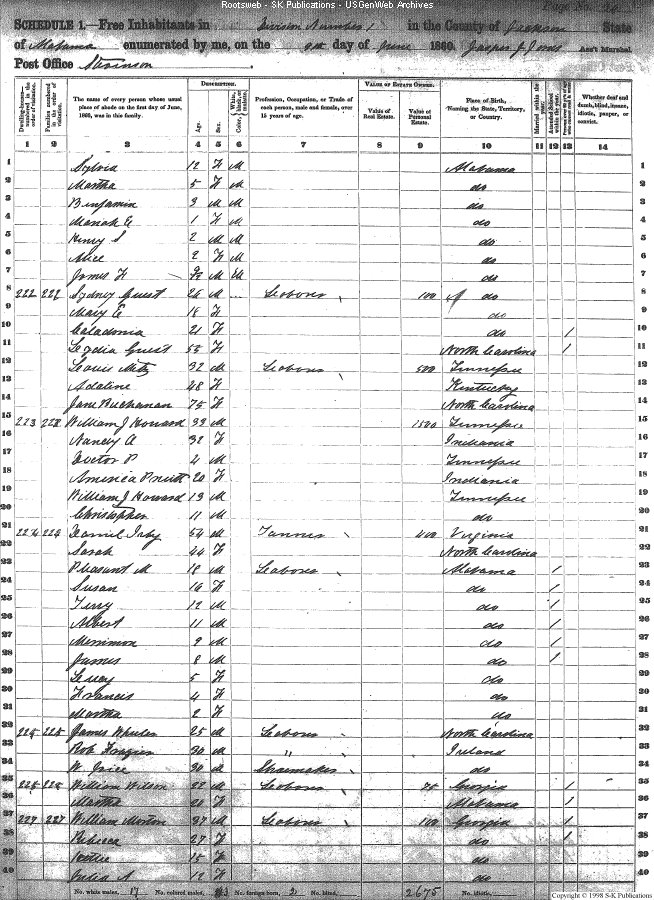 Rootsweb - SK Publications - USGenWeb Archives
SCHEDULE 1.—Free Inhabitants in Division Number 1 in the County of Jackson State
of Alabama enumerated by me, on the day of June 1860. Jasper J. Jones Ass't Marshal
Post Office Stevenson
Dwelling-houses— numbered in the order of visitation. Families numbered in the order of visitation. The name of every person whose usual place of abode on the first day of June, 1860, was in this family. DESCRIPTION. Age. Sex. Color, White, black, or mulatto. Profession, Occupation, or Trade of each person, male and female, over 15 years of age. VALUE OF ESTATE OWNED. Value of Real Estate. Value of Personal Estate. Place of Birth, Naming the State, Territory, or Country. Married within the year. Attended School within the year. Whether deaf and dumb, blind, insane, idiotic, pauper, or convict.
1 2 3 4 5 6 7 8 9 10 11 12 13 14
1 Sylvia 12 F M Alabama 1
2 Martha 5 F M do 2
3 Benjamin 3 M M do 3
4 E 1 F M do 4
5 Henry S 2 M M do 5
6 Alice 2 F M do 6
7 James F M M do 7
8 222 222 Sydney Guest 26 M Laborer 100 do 8
9 Mary E 18 F do 9
10 Caladonia 21 F do 1 10
11 Lydia Guest 53 F North Carolina 1 11
12 Louis 32 M Laborer 500 Tennessee 12
13 Adaline 48 F Kentucky 13
14 Jane Buchanan 75 F North Carolina 14
15 223 223 William J Howard 39 M 1500 Tennessee 15
16 Nancy A 32 F Indiania 16
17 Doctor P 4 M Tennessee 17
18 America Pruitt 20 F Indiania 18
19 William J Howard 13 M Tennessee 19
20 Christopher 11 M do 20
21 224 224 Daniel Irby 54 M Tanner 400 Virginia 21
22 Sarah 44 F North Carolina 22
23 Pleasant M 18 M Laborer Alabama 1 23
24 Susan 16 F do 1 24
25 Terry 12 M do 1 25
26 Albert 11 M do 1 26
27 Merrimon 9 M do 1 27
28 James 8 M do 1 28
29 Lucy 5 F do 29
30 Francis 4 F do 30
31 Martha 2 F do 31
32 225 225 James Wheeler 25 M Laborer North Carolina 32
33 Rob Frazier 30 M " Ireland 33
34 W. Price 30 M Shoemaker do 34
35 William Wilson 22 M Laborer Georgia 1 35
36 Martha 20 F Alabama 1 36
37 227 227 William Morton 37 M Laborer 100 Georgia 1 37
38 Rebecca 27 F do 1 38
39 15 F do 39
40 Julia A 12 F do 40
No. white males, 17 No. colored males, No. foreign born, 2 No. blind, 2675 No. idiotic,
Copyright © 1998 S-K Publications